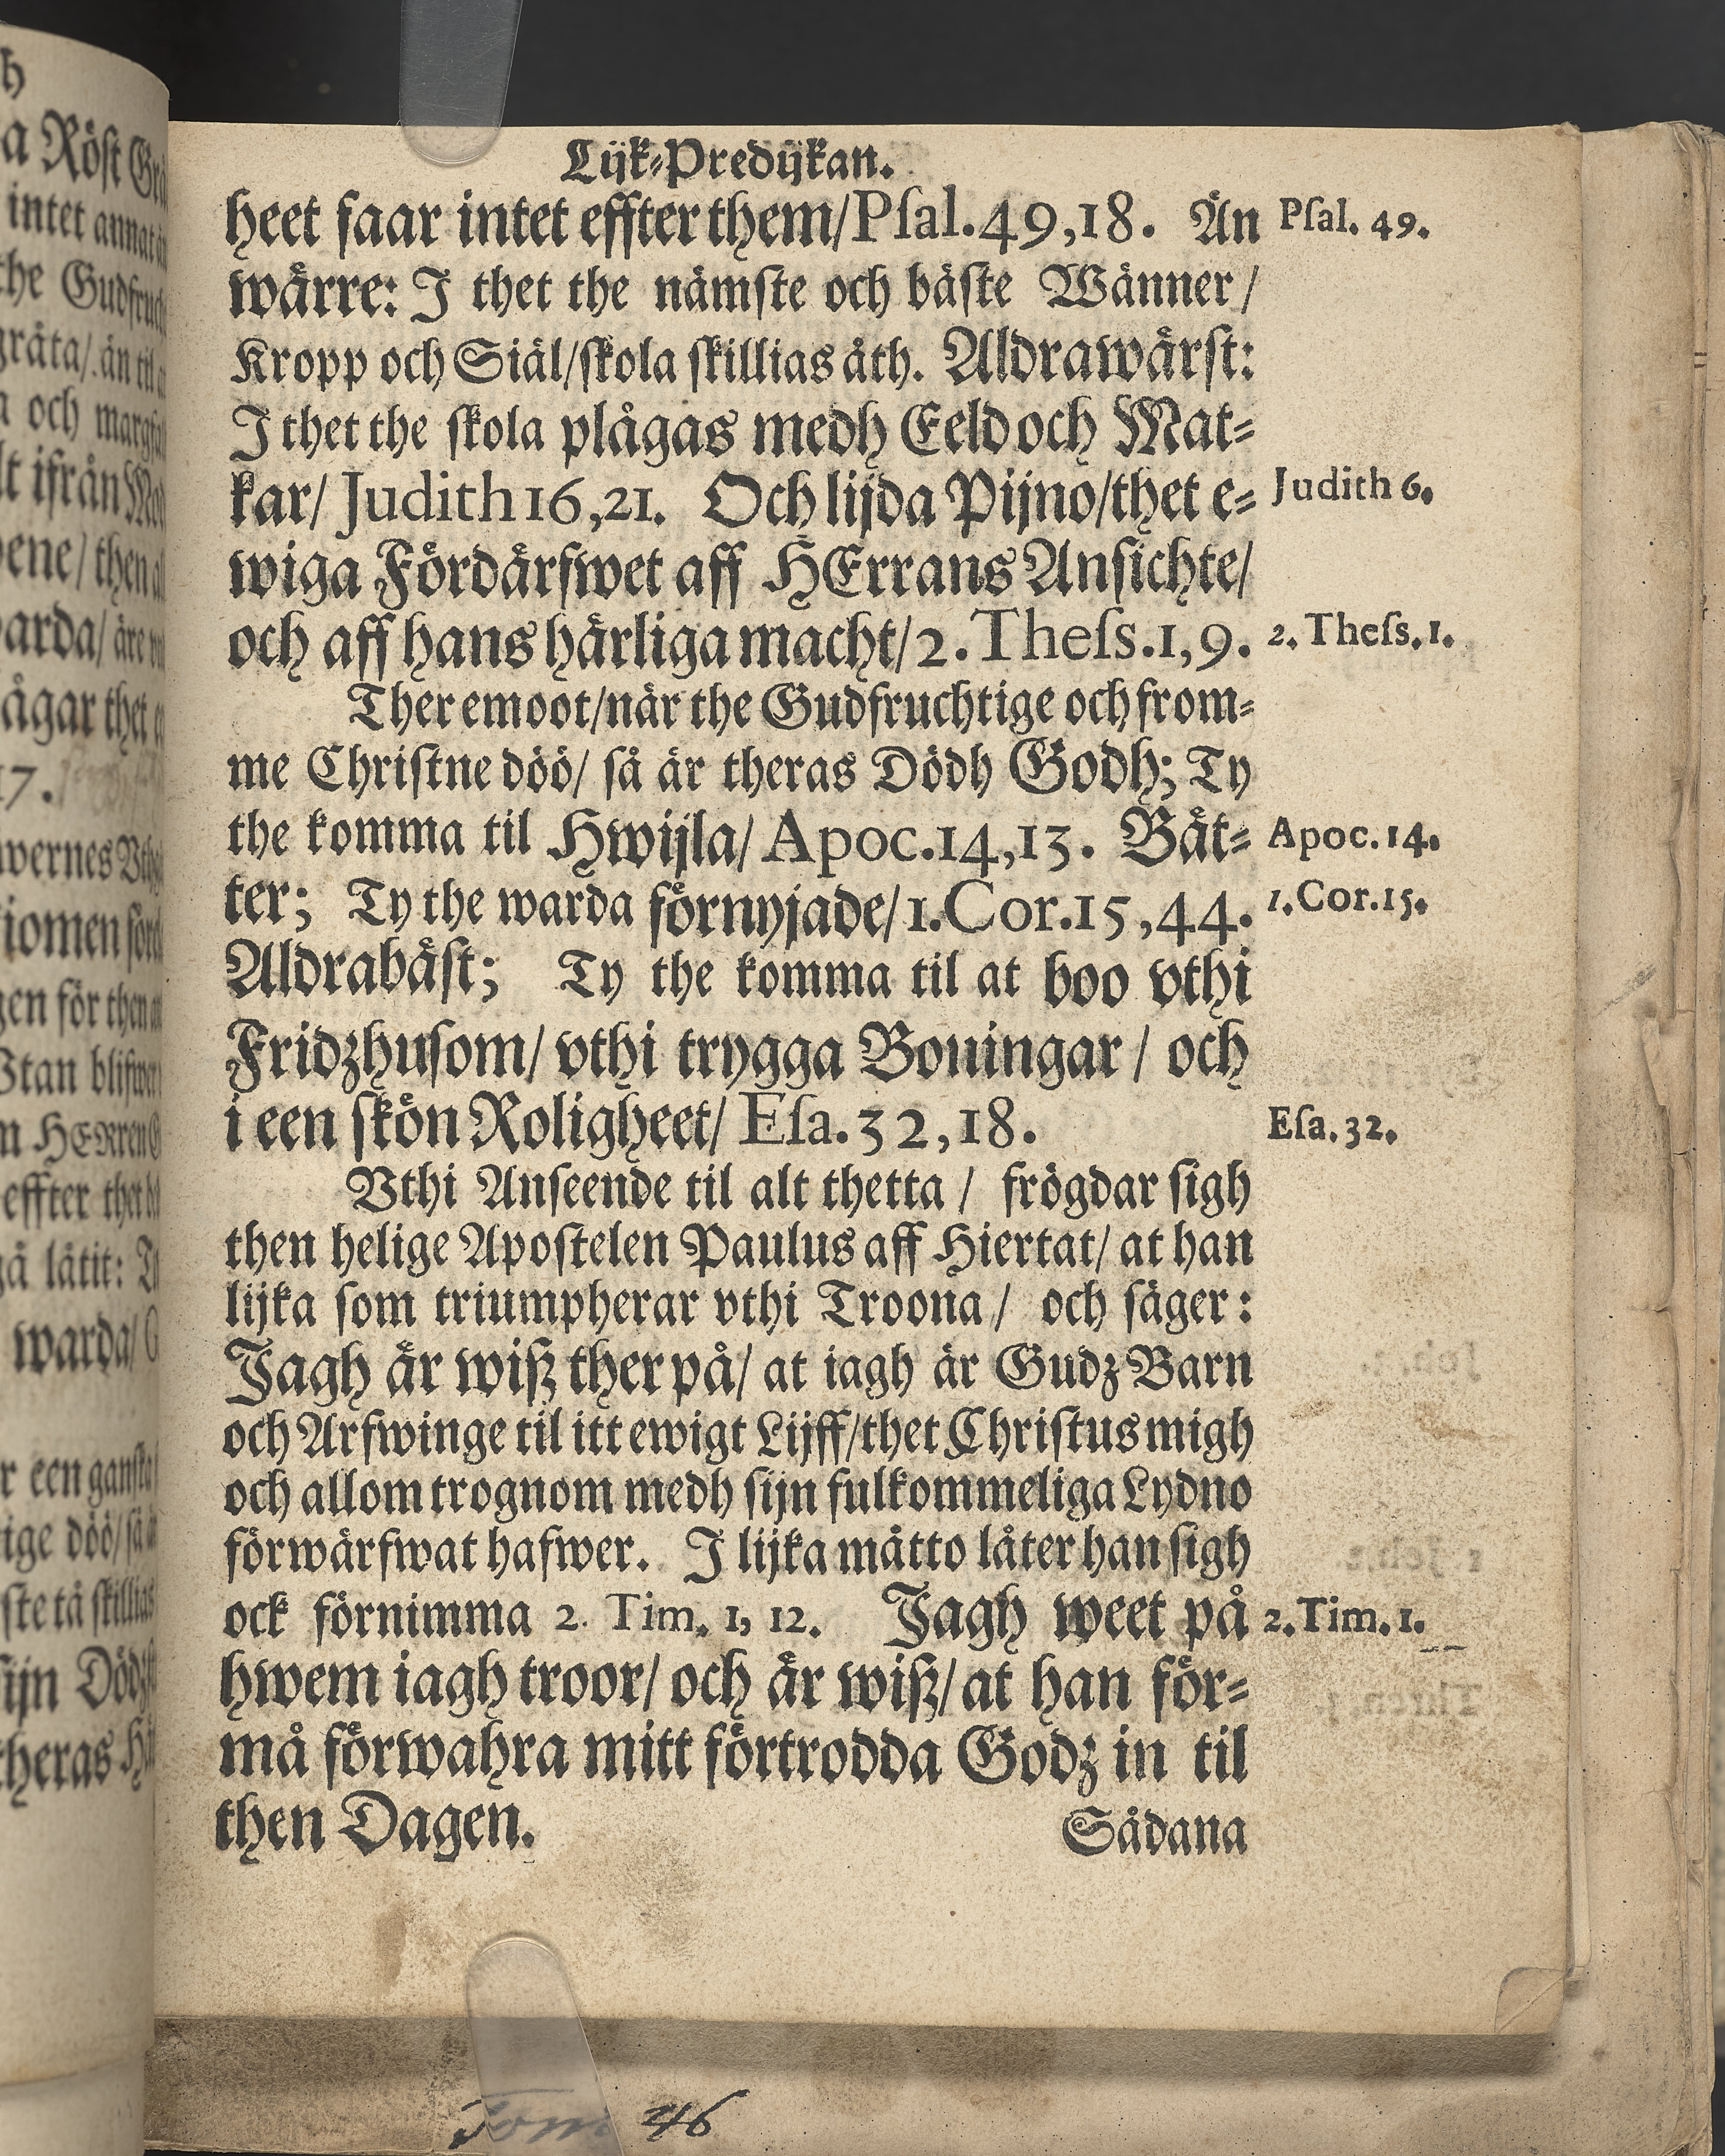 Lijk-Predijkan.
heet faar intet effter them/ Pſal. 49,18. Än
wärre: J thet the nämſte och bäſte Wänner/
Kropp och Siäl/ ſkola ſkillias åth. Aldrawärſt:
J thet the ſkola plågas medh Eeld och Mat-
kar/ Judith 16,21. Och lijda Pijno/ thet e-
wiga Fördärfwet aff HErrans Anſichte/
och aff hans härliga macht/ 2. Theſs. 1,9.
Ther emoot/ när the Gudfruchtige och from-
me Chriſtne döö/ ſå är theras Dödh Godh; Ty
the komma til Hwijla/ Apoc. 14,13. Bät-
ter; Ty the warda förnyjade/ 1. Cor. 15,44.
Aldrabäſt; Ty the komma til at boo vthi
Fridzhuſom/ vthi trygga Boningar/ och
i een ſkön Roligheet/ Eſa. 32,18.
Vthi Anſeende til alt thetta/ frögdar ſigh
then helige Apoſtelen Paulus aff Hiertat/ at han
lijka ſom triumpherar vthi Troona/ och ſäger:
Jagh är wiß ther på/ at iagh är Gudz Barn
och Arfwinge til itt ewigt Lijff/ thet Chriſtus migh
och allom trognom medh ſijn fulkommeliga Lydno
förwärfwat hafwer. J lijka måtto låter han ſigh
ock förnimma 2. Tim. 1, 12. Jagh weet på
hwem iagh troor/ och är wiß/ at han för-
må förwahra mitt förtrodda Godz in til
then Dagen.
Sådana
Pſal. 49.
Judith 6.
2. Theſs. 1.
Apoc. 14.
1. Cor. 15.
Eſa. 32.
2. Tim. 1.
Tom 46